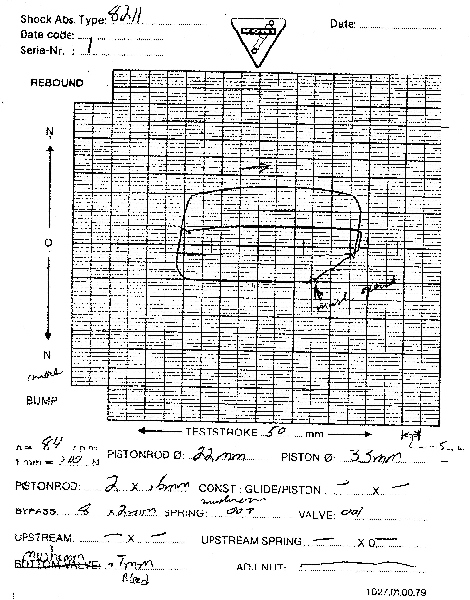 Shock Abs. Type: 8211
Date:
Date code:
Seria-Nr. : 1
REBOUND
N
O
N
BUMP
TESTSTROKE 50 mm
n = 84
1 mm = N
PISTONROD Ø: 22mm PISTON Ø: 35mm
PISTONROD: 2 x .6mm CONST: GLIDE/PISTON — x —
mushroom
BYPASS 8 x 2mm SPRING: 007 VALVE: 001
UPSTREAM: — x — UPSTREAM SPRING — x 0 —
mushroom
BOTTOM VALVE: 7mm ADJ. NUT:
Bleed
1027.01.00.79